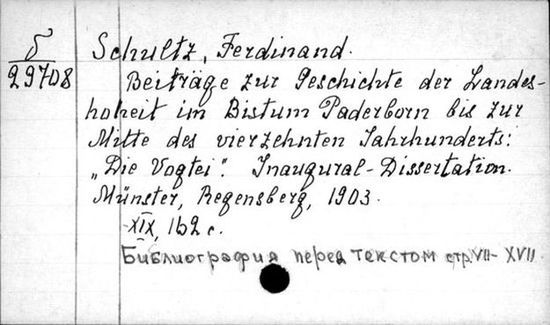 δ
29708
Schultz, Ferdinand.
Beiträge zur Geschichte der Landes-
hoheit im Bistum Paderborn bis zur
Mitte des vierzehnten Jahrhunderts:
„Die Vogtei". Inaugural-Dissertation.
Münster, Regensberg, 1903.
XIX, 162 c.
Библиография перед текстом стр. VII-XVII